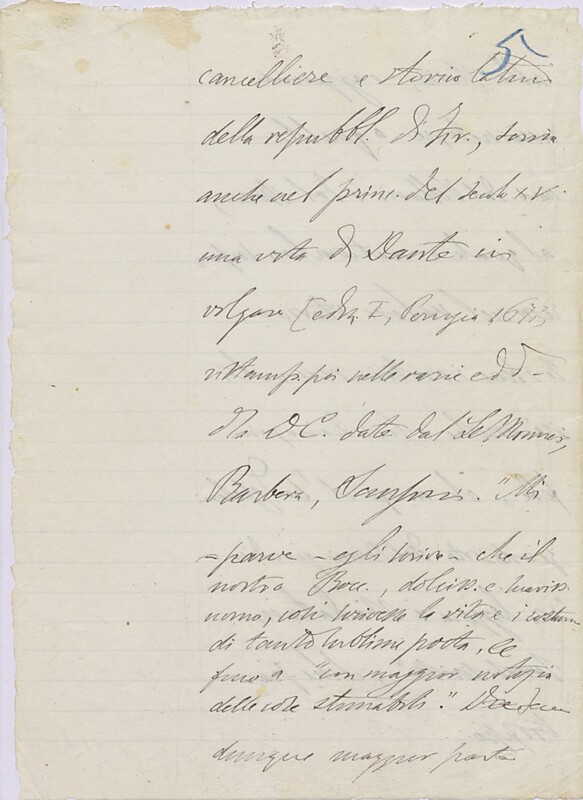 5
cancelliere e storico latino
della repubbl. di Fir., scrive
anche nel princ. del secolo XV
una vita di Dante in
volgare [ediz. I, Perugia 1671,
ristamp. poi nelle varie edd.
d/a D. C. date dal Le Monnier,
Barbera, Sansoni. "Mi
– parve – egli scrive – che il
nostro Bocc., dolciss. e suaviss.
uomo, così scrivesse la vita e i costumi
di tanto sublime poeta, ce
fino a "con maggior notizia
delle cose stimabili."
dunque maggior parte